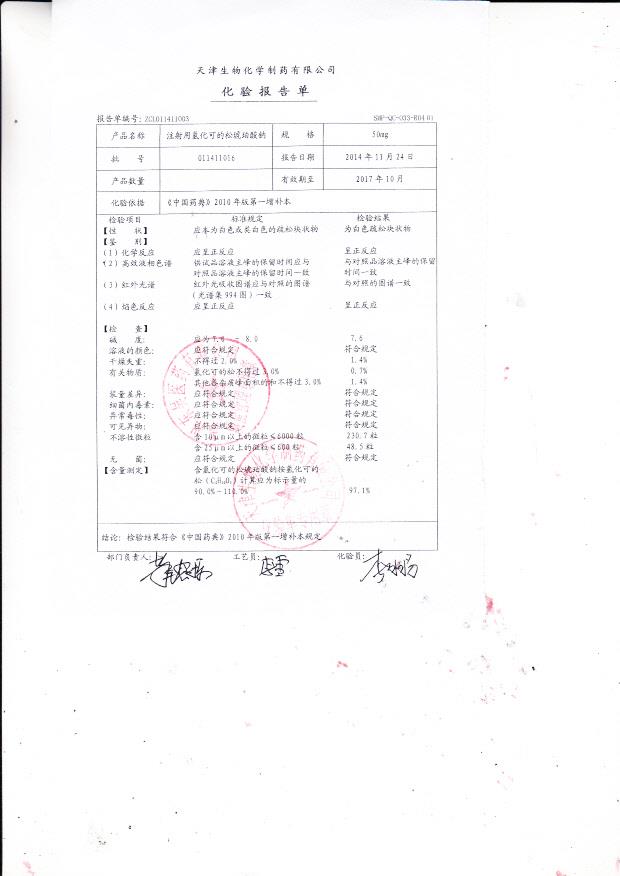 天津生物化学制药有限公司
化验报告单
报告单编号: ZCL011411003 SMP-QC-033-R04 01
产品名称 注射用氢化可的松琥珀酸钠 规 格 50mg
批 号 011411016 报告日期 2014 年 11 月 24 日
产品数量 有效期至 2017 年 10 月
化验依据 《中国药典》2010 年版第一增补本
检验项目 标准规定 检验结果
【性 状】 应本为白色或类白色的疏松块状物 为白色疏松块状物
【鉴 别】
(1) 化学反应 应呈正反应 呈正反应
(2) 高效液相色谱 供试品溶液主峰的保留时间应与 与对照品溶液主峰的保留
对照品溶液主峰的保留时间一致 时间一致
(3) 红外光谱 红外光吸收图谱应与对照的图谱 与对照的图谱一致
(光谱集 994 图) 一致
(4) 焰色反应 应呈正反应 呈正反应
【检 查】
碱 度: 应为 7.0 - 8.0 7.6
溶液的颜色: 应符合规定 符合规定
干燥失重: 不得过 2.0% 1.4%
有关物质: 氢化可的松不得过 3.0% 0.7%
其他各杂质峰面积的和不得过 3.0% 1.4%
装量差异: 应符合规定 符合规定
细菌内毒素: 应符合规定 符合规定
异常毒性: 应符合规定 符合规定
可见异物: 应符合规定 符合规定
不溶性微粒 含 10μm 以上的微粒≤6000 粒 230.7 粒
含 25μm 以上的微粒≤600 粒 48.5 粒
无 菌: 应符合规定 符合规定
【含量测定】 含氢化可的松琥珀酸钠按氢化可的
松 计算应为标示量的
90.0%-110.0% 97.1%
结论: 检验结果符合《中国药典》2010 年版第一增补本规定
部门负责人: 工艺员: 化验员: